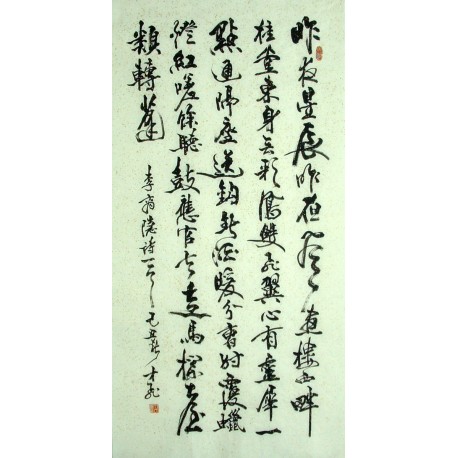 昨夜星辰昨夜風畫樓西畔
桂堂東身无彩鳳雙飛翼心有靈犀一
點通隔座送鈎春酒暖分曹射覆蠟
燈紅嗟餘聽鼓應官去走馬蘭臺
類轉蓬
李商隱詩一首 己丑